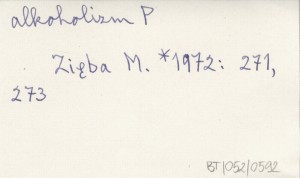 alkoholizm P
Zięba M. *1972: 271,
273
BT/052/0592